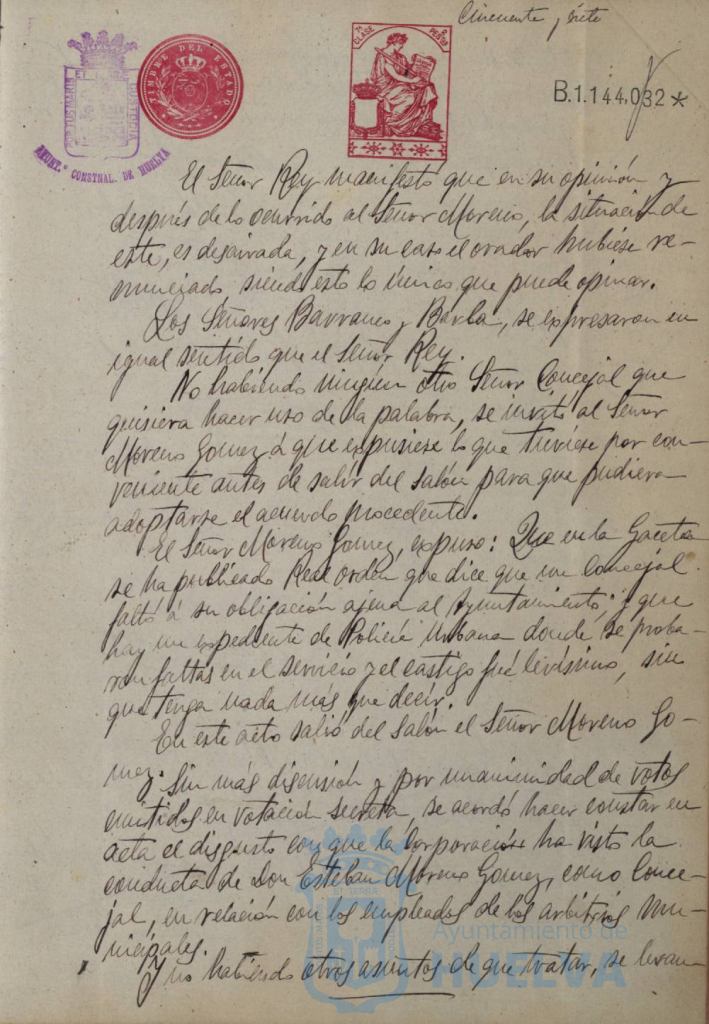 Cincuenta y siete
7ª CLASE
PESETAS
TIMBRE DEL ESTADO
B.1.144.032*
AYUNT.º CONSTNAL. DE HUELVA
El Señor Rey manifestó que en su opinión y
después de lo ocurrido al Señor Moreno, la situación de
este, es desairada, y en su caso el orador hubiese re-
nunciado siendo esto lo único que puede opinar.
Los Señores Barranco y Barba, se expresaron en
igual sentido que el Señor Rey.
No habiendo ningún otro Señor Concejal que
quisiera hacer uso de la palabra, se invitó al Señor
Moreno Gomez á que expusiese lo que tuviese por con-
veniente antes de salir del salón para que pudiera
adoptarse el acuerdo procedente.
El Señor Moreno Gomez, expuso: Que en la Gaceta
se ha publicado Real orden que dice que un Concejal
faltó á su obligación ajena al Ayuntamiento; y que
hay un expediente de Policía Urbana donde se proba-
ron faltas en el servicio y el castigo fué levísimo, sin
que tenga nada más que decir.
En este acto salió del salón el Señor Moreno Go-
mez. Sin más discusión y por unanimidad de votos
emitidos en votación secreta, se acordó hacer constar en
acta el disgusto con que la Corporación ha visto la
conducta de Don Esteban Moreno Gomez, como Conce-
jal, en relación con los empleados de los arbitrios mu-
nicipales.
Y no habiendo otros asuntos de que tratar, se levan-
Ayuntamiento de
HUELVA